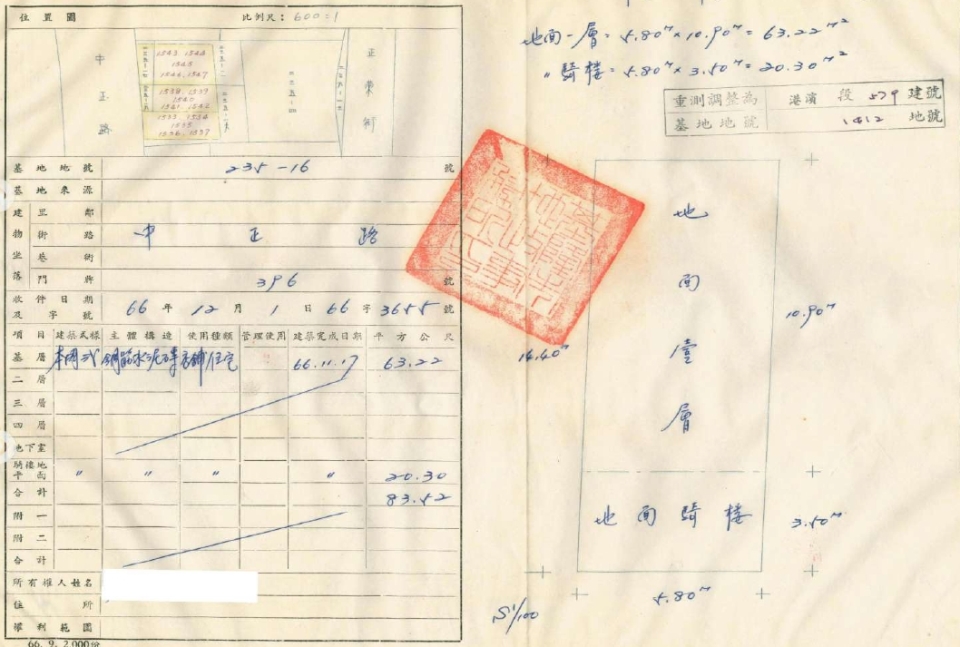 位置圖 比例尺：600=1
中 正 路
正 榮 街
1543. 1544
1545
1546, 1547
1538, 1539
1540
1541, 1542
1533, 1534
1535
1536, 1537
基地地號 235-16 號
基地來源
建物坐落
里鄰
街路 中 正 路
巷衖
門牌 396 號
收件日期及字號 66 年 12 月 1 日 66 字 3655 號
項目 建築式樣 主體構造 使用種類 管理使用 建築完成日期 平方公尺
基層 本國式 鋼筋水泥磚 店鋪住宅 66.11.17 63.22
二層
三層
四層
地下室
騎樓地平面 〃 〃 〃 〃 20.30
合計 83.52
附一
附二
合計
所有權人姓名
住所
權利範圍
66. 9. 2,000份
地面一層=5.80ᵐ×10.90ᵐ=63.22ᵐ²
〃騎樓=5.80ᵐ×3.50ᵐ=20.30ᵐ²
重測調整為 港濱 段 579 建號
基地地號 1412 地號
地面壹層
10.90ᵐ
14.40ᵐ
地面騎樓
3.50ᵐ
5.80ᵐ
S:1/100